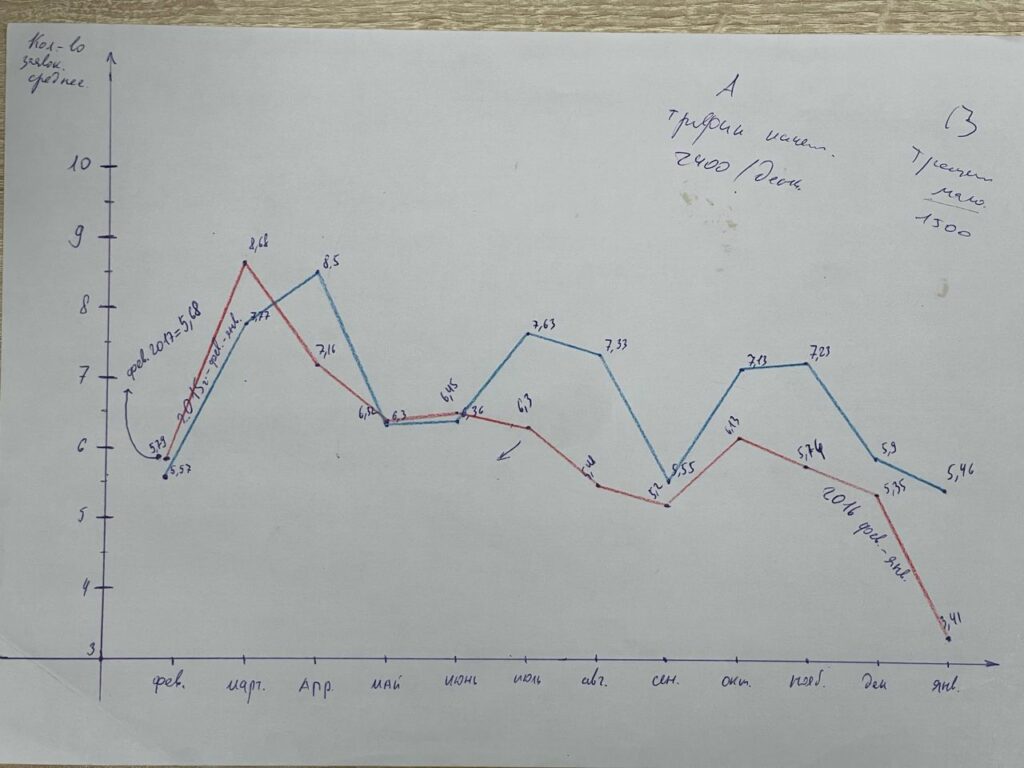 Кол-во
заявок.
среднее.
А
трафик
2400/день
В
мало.
1500
10
9
8
7
6
5
4
3
8,68
8,5
7,77
7,16
фев. 2017=5,68
2015г.-фев.-янв.
5,79
5,57
6,3
6,45
6,36
7,63
6,3
7,33
5,55
5,2
7,13
6,13
7,23
5,74
5,9
5,35
5,46
2016 фев.-янв.
3,41
фев. март. Апр. май июнь июль авг. сен. окт. нояб. дек янв.